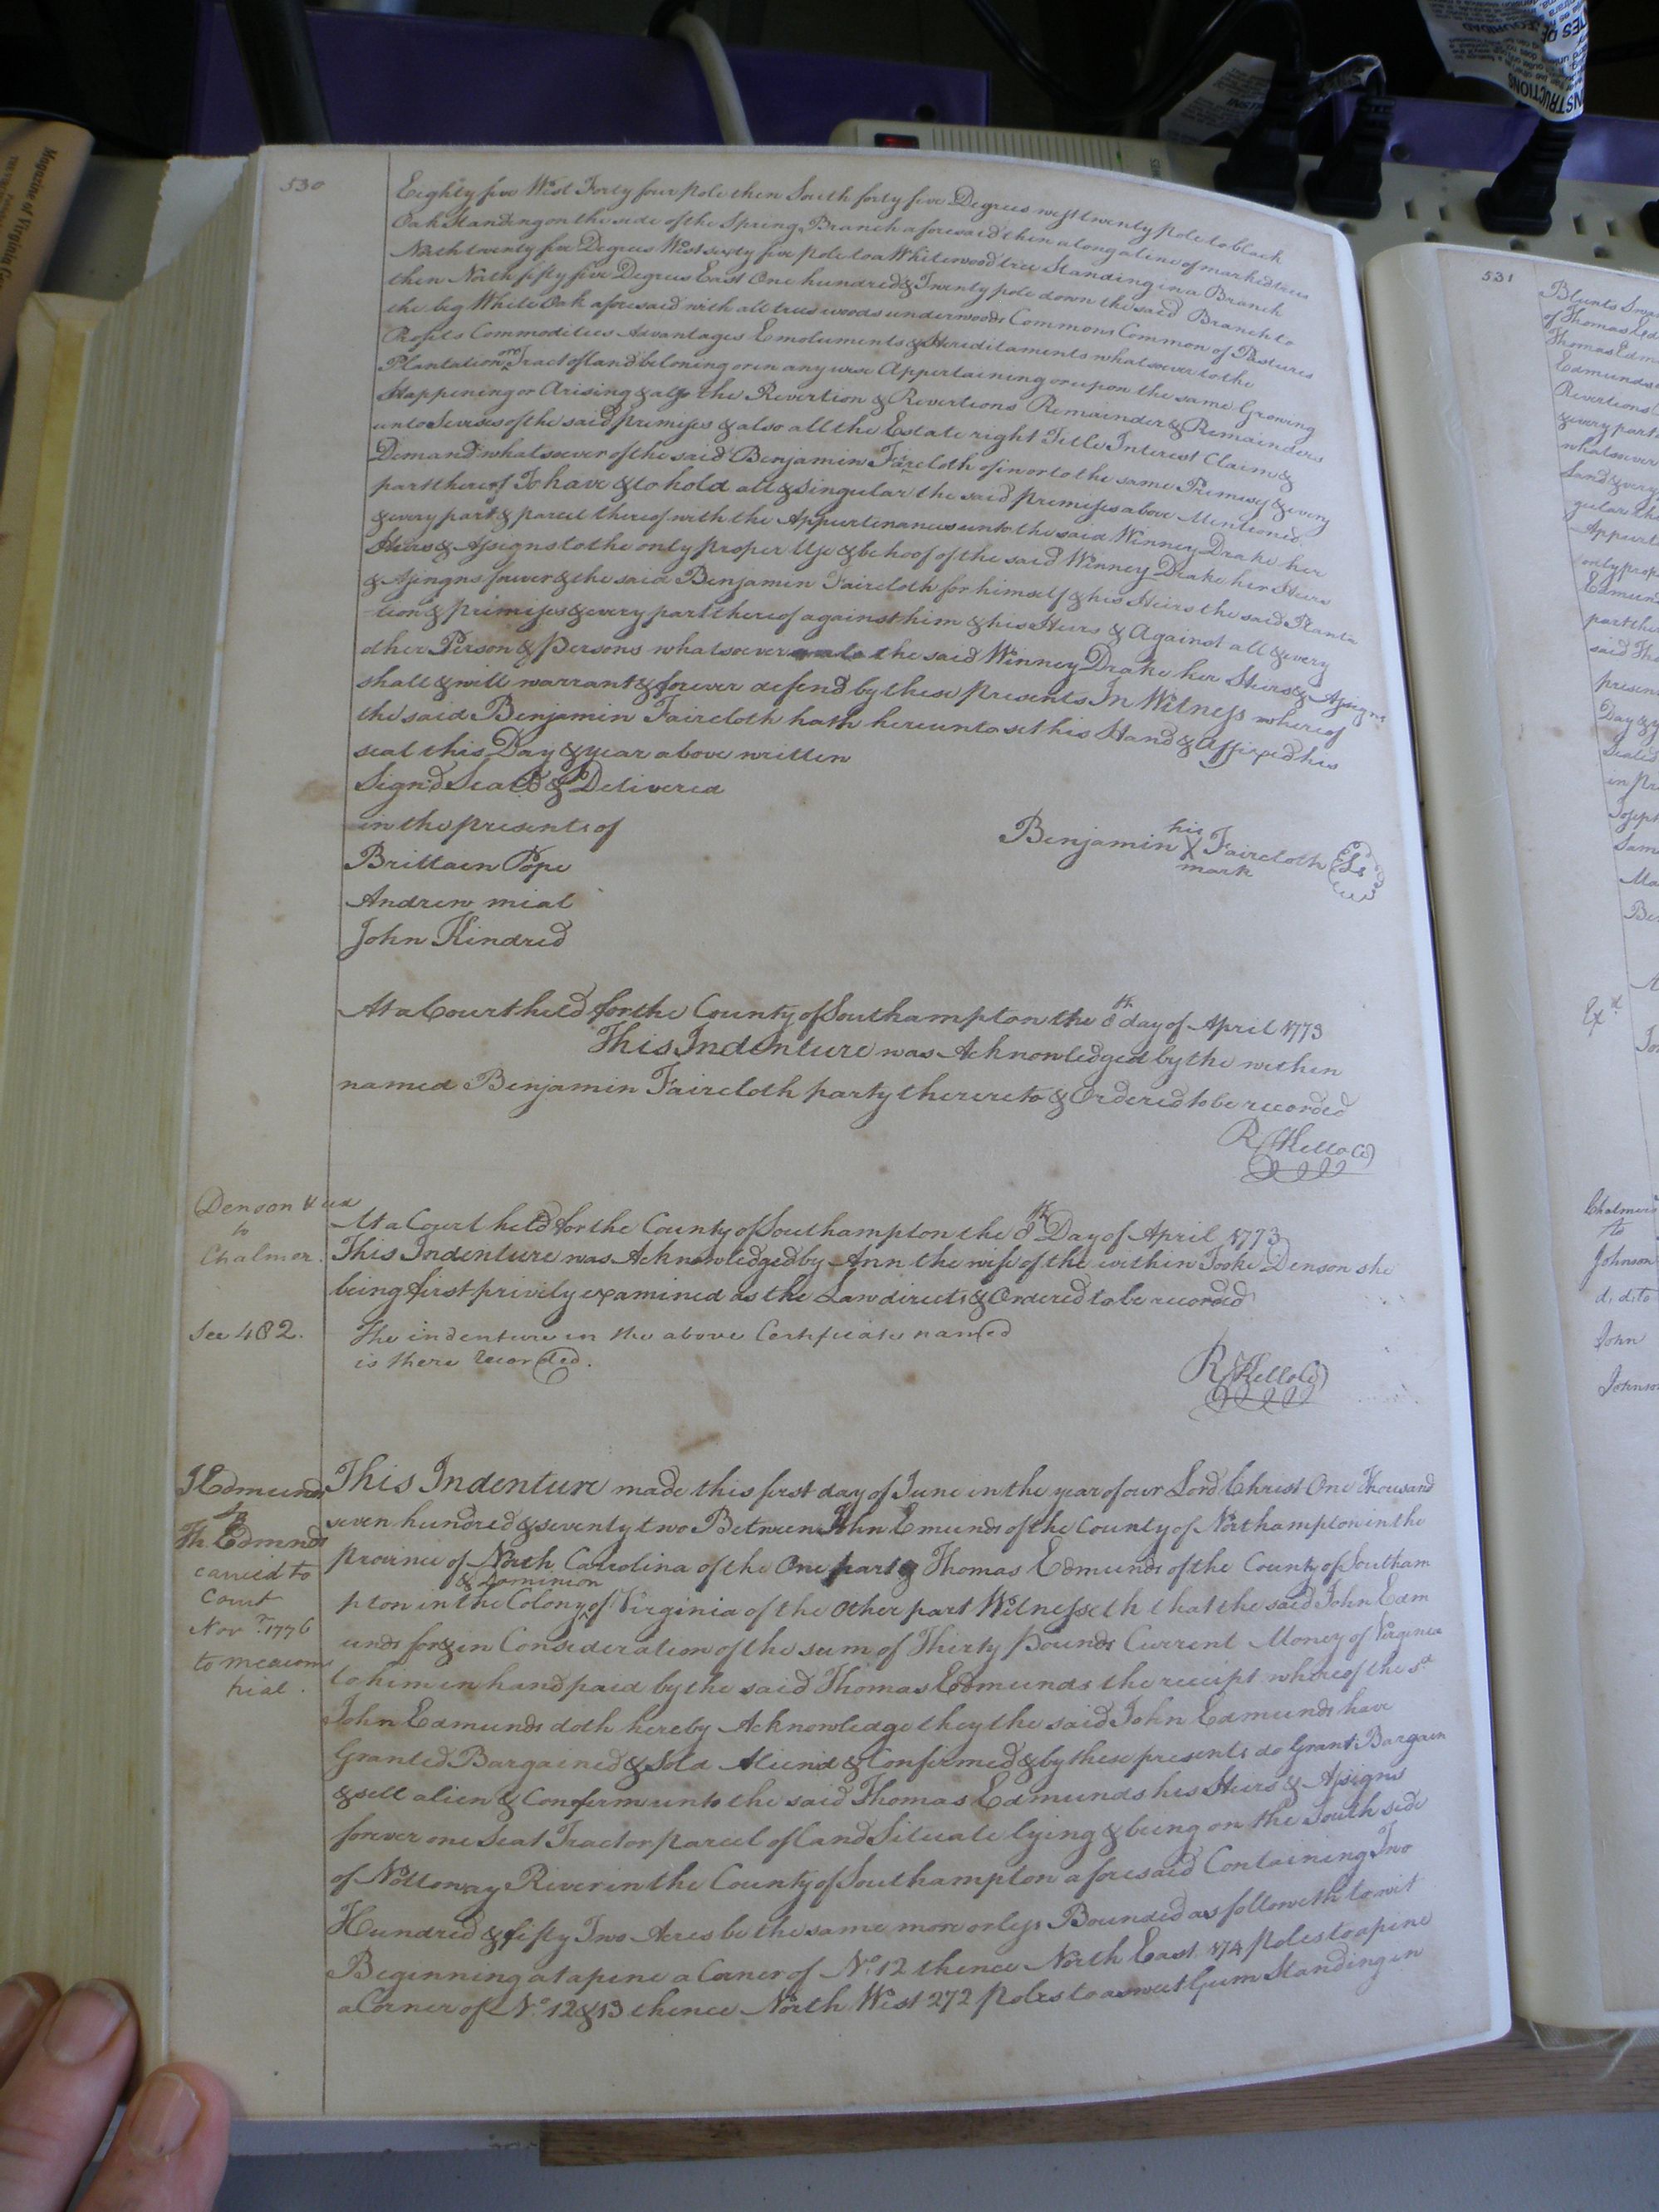 530
Eighty five West Forty four pole then South forty five Degrees west twenty pole to black
Oak Standing on the side of the Spring Branch aforesaid then along a line of marked trees
North twenty five Degrees West sixty five pole to a Whitewood tree Standing in a Branch
then North fifty five Degrees East One hundred & Twenty pole down the said Branch to
the big White Oak aforesaid with all trees woods underwoods Commons Common of Pastures
Profits Commodities Advantages Emoluments & Hereditaments whatsoever to the
Plantation or Tract of land beloning or in any wise Appertaining or upon the same Growing
Happening or Arising & also the Revertion & Revertions Remainder & Remainders
unto of the said premises & also all the Estate right Title Interest Claim &
Demand whatsoever of the said Benjamin Faircloth of in or to the same Premises & every
part thereof To have & to hold all & Singular the said premises above Mentioned
& every part & parcel thereof with the Appurtinances unto the said Winney Drake her
Heirs & Assigns to the only proper Use & behoof of the said Winney Drake her Heirs
& Assingns forever & the said Benjamin Faircloth for himself & his Heirs the said Planta
tion & primises & every part thereof against him & his Heirs & Against all & every
other Person & Persons whatsoever the said Winney Drake her Heirs & Assigns
shall & will warrant & forever defend by these presents In Witness whereof
the said Benjamin Faircloth hath hereunto set his Hand & Affixed his
seal this Day & year above written
Sign'd Seal'd & Delivered
in the presents of
Brittain Pope
Andrew mial
John Kindred
Benjamin his X mark Faircloth Ls
At a Court held for the County of Southampton the 8th day of April 1773
This Indenture was Acknowledged by the within
named Benjamin Faircloth party thereto & Ordered to be recorded
R Kello CC
Denson & ux
to
Chalmer.
At a Court held for the County of Southampton the 8th Day of April 1773
This Indenture was Acknowledged by Ann the wife of the within Tooke Denson she
being first privily examined as the Law directs & Ordered to be recorded
See 482.
The indenture in the above Certificate named
is there recorded.
R Kello CC
J Edmunds
to
Th. Edmnds
carried to
Court
Novr. 1776
This Indenture made this first day of June in the year of our Lord Christ One Thousand
seven hundred & seventy two Between John Emunds of the County of Northampton in the
province of North Carrolina of the One part & Thomas Edmunds of the County of Southam
pton in the Colony & Dominion of Virginia of the Other part Witnesseth that the said John Edm
unds for & in Consideration of the sum of Thirty Pounds Current Money of Virginia
to him in hand paid by the said Thomas Edmunds the receipt whereof the sd
John Edmunds doth hereby Acknowledge they the said John Edmunds have
Granted Bargained & Sold Aliend & Confirmed & by these presents do Grant Bargain
& sell alien & Confirm unto the said Thomas Edmunds his Heirs & Assigns
forever one Seat Tract or parcel of Land Situate lying & being on the South side
of Nottoway River in the County of Southampton aforesaid Containing Two
Hundred & fifty Two Acres be the same more or less Bounded as followeth to wit
Beginning at a pine a Corner of No. 12 thence North East 174 poles to a pine
a Corner of No. 12 & 13 thence North West 272 Poles to a sweet Gum Standing in
531
Blunts
of Thomas
Thomas
Edmunds
Revertions
& every part
whatsoever
Land & every
only
said
Day &
Chalmers
to
Johnson
John
Magazine of Virginia
INSTRUCTIONS